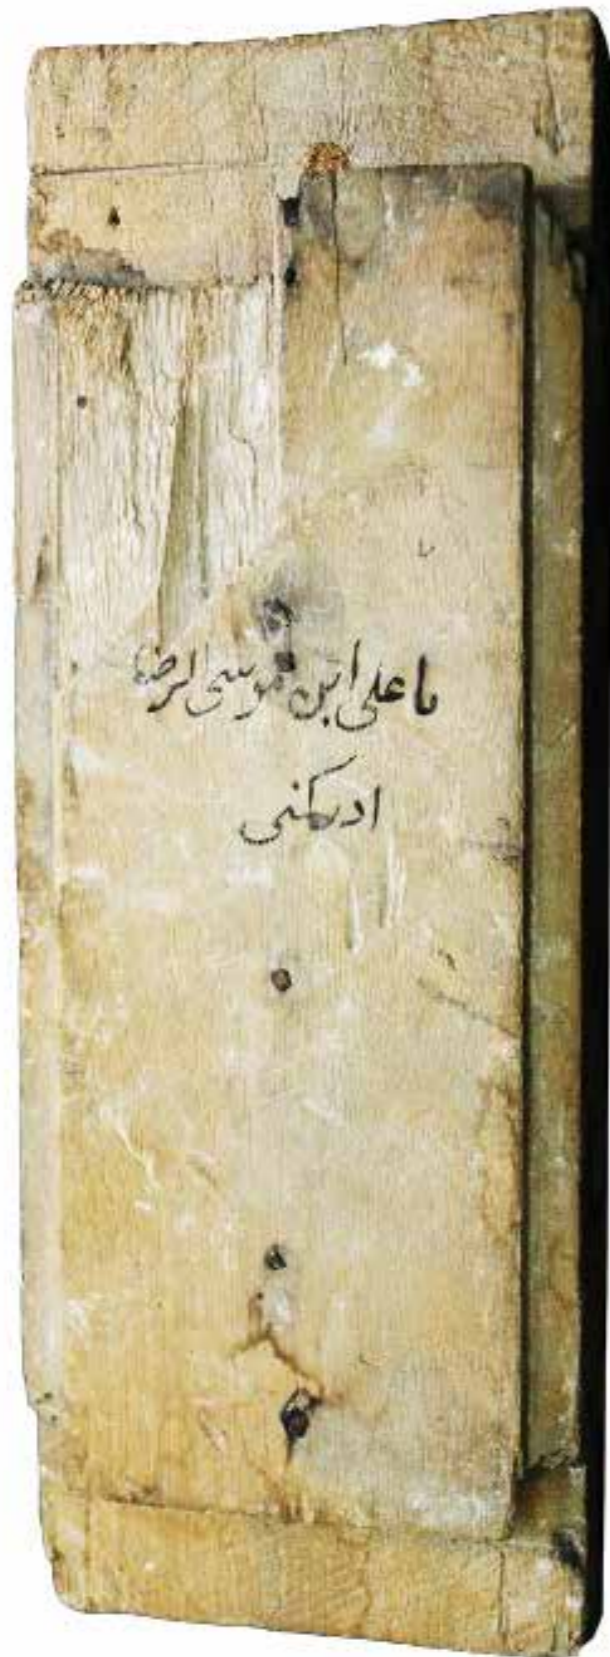 یا علی ابن موسی الرضا
ادرکنی